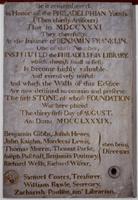 Be it remembered
in Honor of the PHILADELPHIAN Youth,
(Then chiefly Artificers)
That in MDCCXXXI,
They cheerfully,
At the Instance of BENJAMIN FRANKLIN,
One of their Number,
INSTITUTED the PHILADELPHIA LIBRARY
which though small at first,
Is become highly valuable,
and extensively useful:
And which the Walls of this Edifice
Are now destined to contain and preserve:
The first STONE of whose FOUNDATION
Was here placed
The thirty first Day of AUGUST,
Anno Dom. MDCCLXXXIX.
Benjamin Gibbs, Josiah Hewes,
John Kaighn, Mordecai Lewis,
Thomas Morris, Thomas Parke,
Joseph Paschall, Benjamin Poultney,
Richard Wells, Richard Wistar,
then being
Directors
Samuel Coates, Treasurer
William Rawle, Secretary
Zachariah Poulson, jun. Librarian.